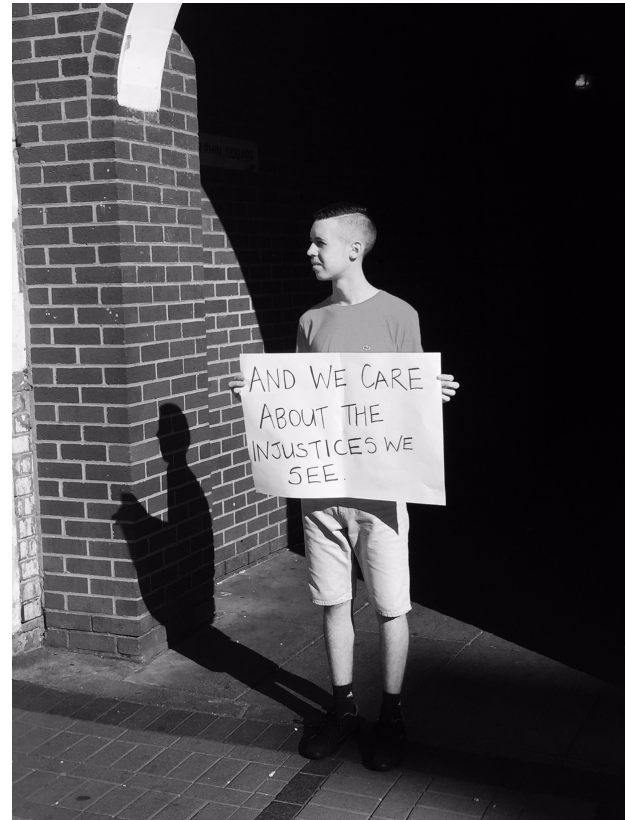 AND WE CARE
ABOUT THE
INJUSTICES WE
SEE.